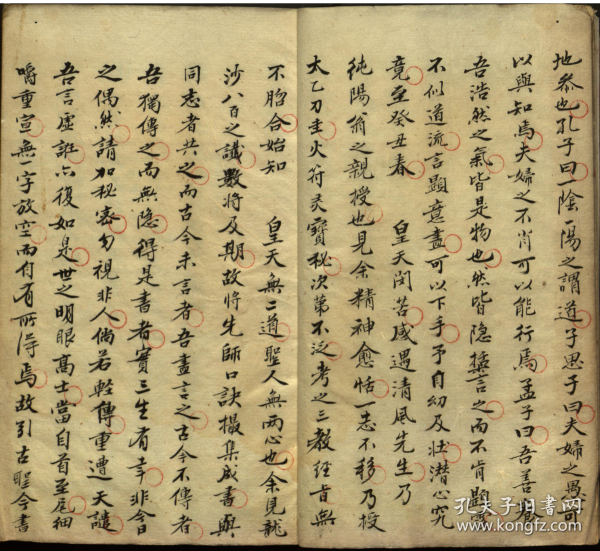 地參也孔子曰一陰一陽之謂道子思子曰夫婦之愚可
以與知焉夫婦之不肖可以能行焉孟子曰吾善養
吾浩然之氣皆是物也然皆隐藴言之而不肯與露
不似道流言顕意盡可以下手予自幼及壮潜心究
竟至癸丑春　皇天閔苦感遇清風先生乃
純陽翁之親授也見余精神愈恬一志不移乃授
太乙刀圭火符灵寳秘次第不泛考之三教経旨無
不脗合始知　皇天無二道聖人無両心也余見龍
沙八百之讖數将及期故将先師口訣撮集成書與
同志者共之而古今未言者吾盡言之古今不傳者
吾獨傳之而無隐得是書者實三生有幸非今日
之偶然請加秘密勿視非人倘若軽傳重遭天譴
吾言虚誑亦復如是世之明眼髙士當自首至尾細
嚼重宣無一字放空而自有所淂焉故引古聖今書
孔夫子旧书网
www.kongfz.com